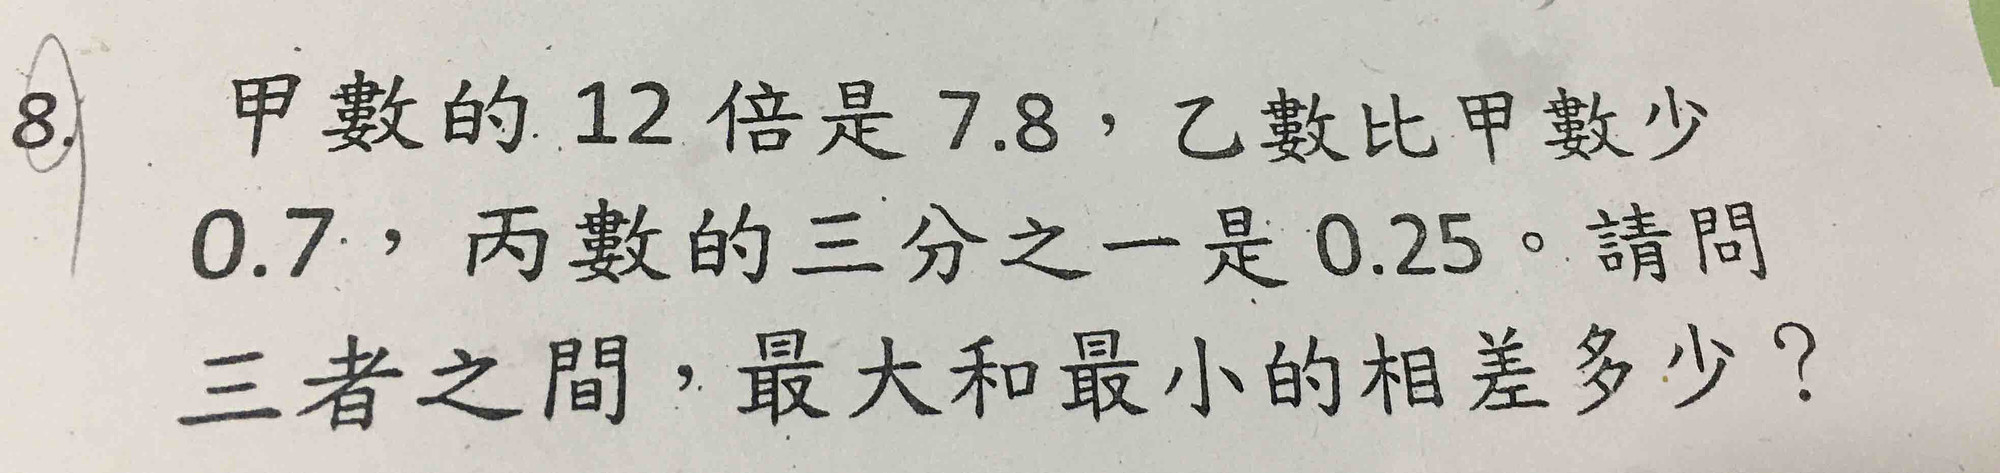 8. 甲數的 12 倍是 7.8，乙數比甲數少
0.7，丙數的三分之一是 0.25。請問
三者之間，最大和最小的相差多少？